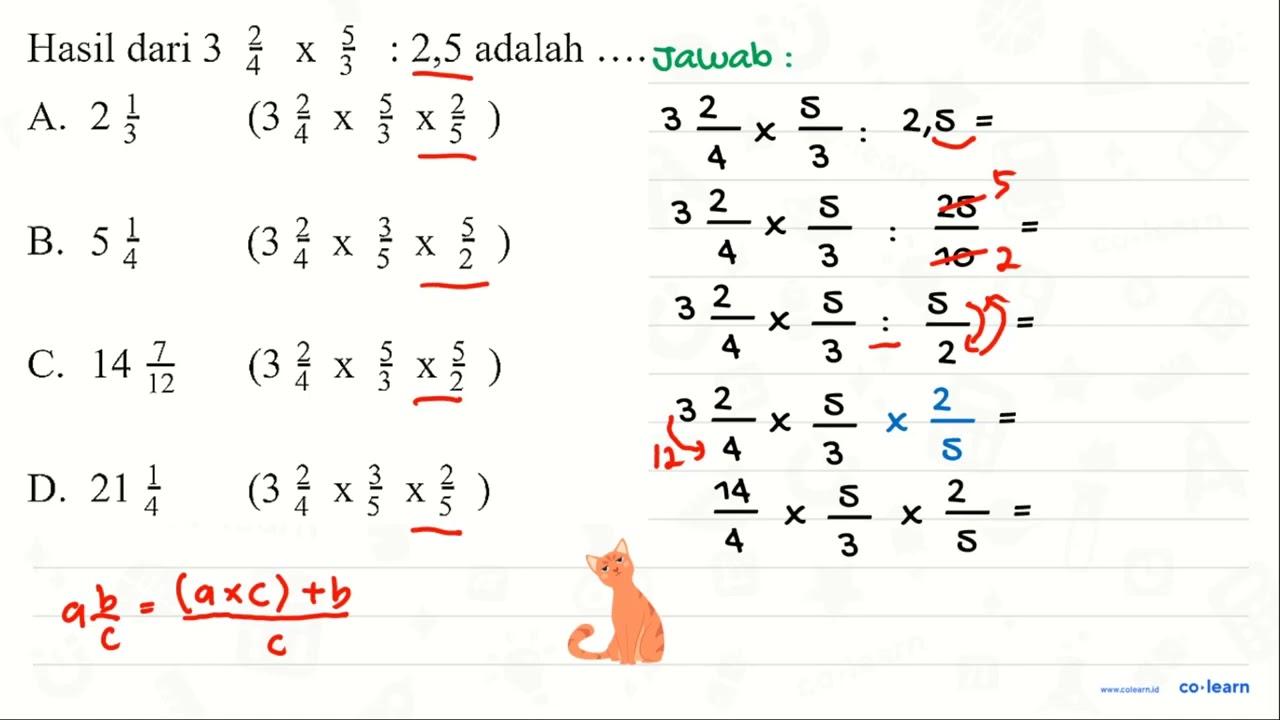 Hasil dari 3 2/4 x 5/3 : 2,5 adalah ....
A. 2 1/3 (3 2/4 x 5/3 x 2/5 )
B. 5 1/4 (3 2/4 x 3/5 x 5/2 )
C. 14 7/12 (3 2/4 x 5/3 x 5/2 )
D. 21 1/4 (3 2/4 x 3/5 x 2/5 )
a b/c = (a x c) + b / c
Jawab :
3 2/4 x 5/3 : 2,5 =
3 2/4 x 5/3 : 25/10 = 5 2
3 2/4 x 5/3 : 5/2 =
3 2/4 x 5/3 x 2/5 =
12
14/4 x 5/3 x 2/5 =
www.colearn.id co·learn